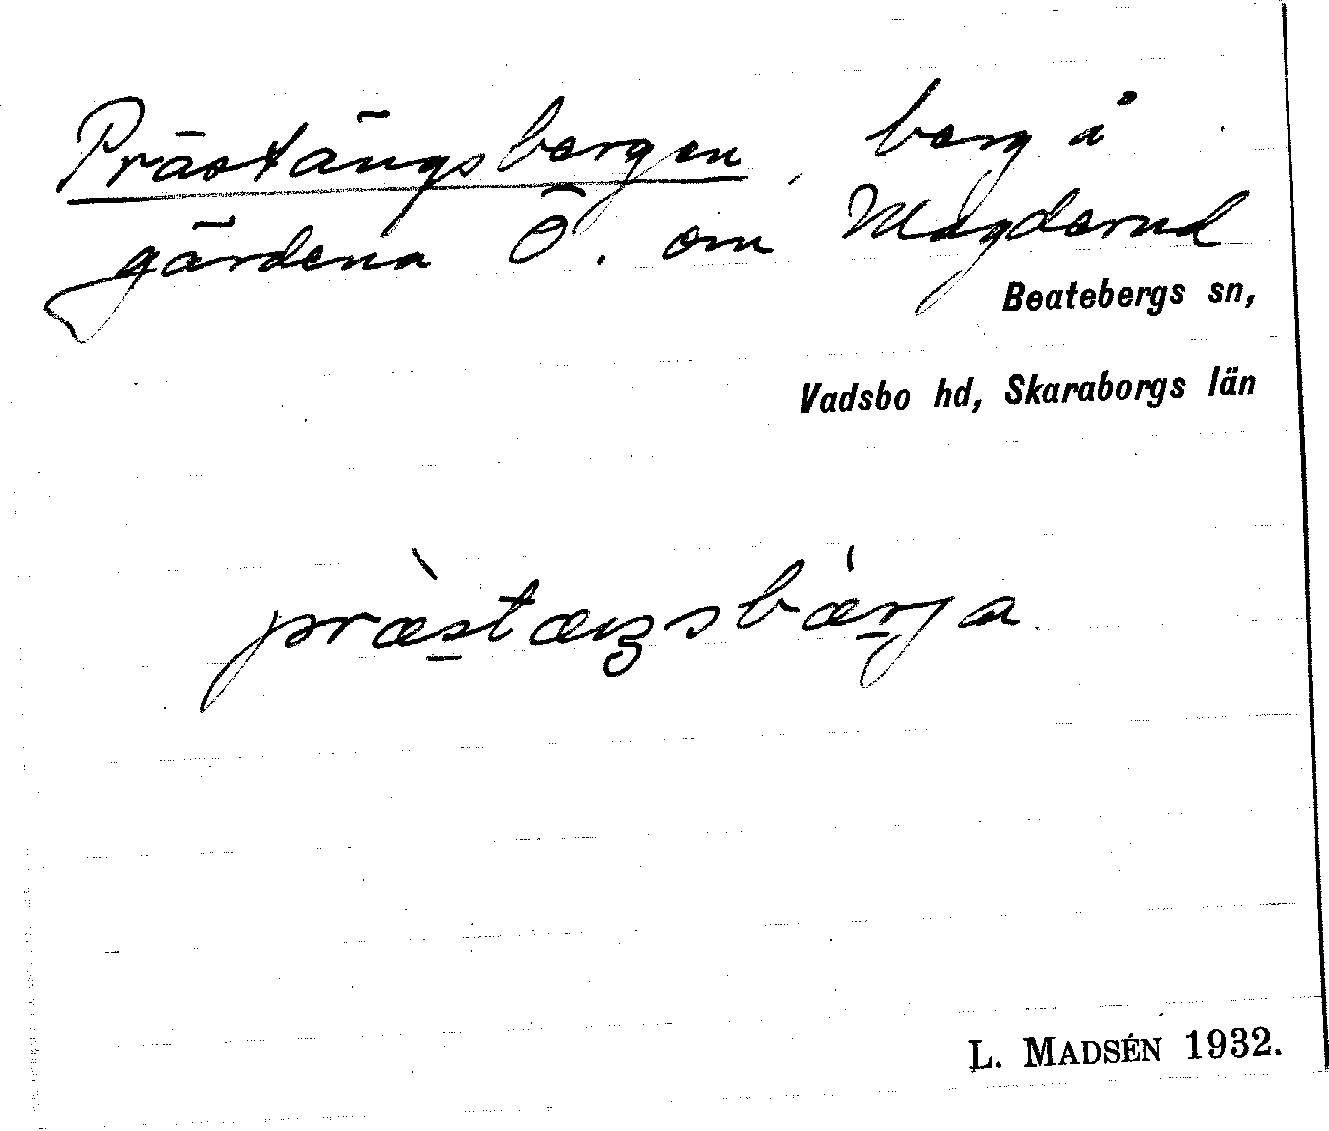 Prästängsbergen, berg å
gärdena Ö. om Magderud
Beatebergs sn,
Vadsbo hd, Skaraborgs län
præ̀stæŋsbæ̍rja
L. MADSÉN 1932.